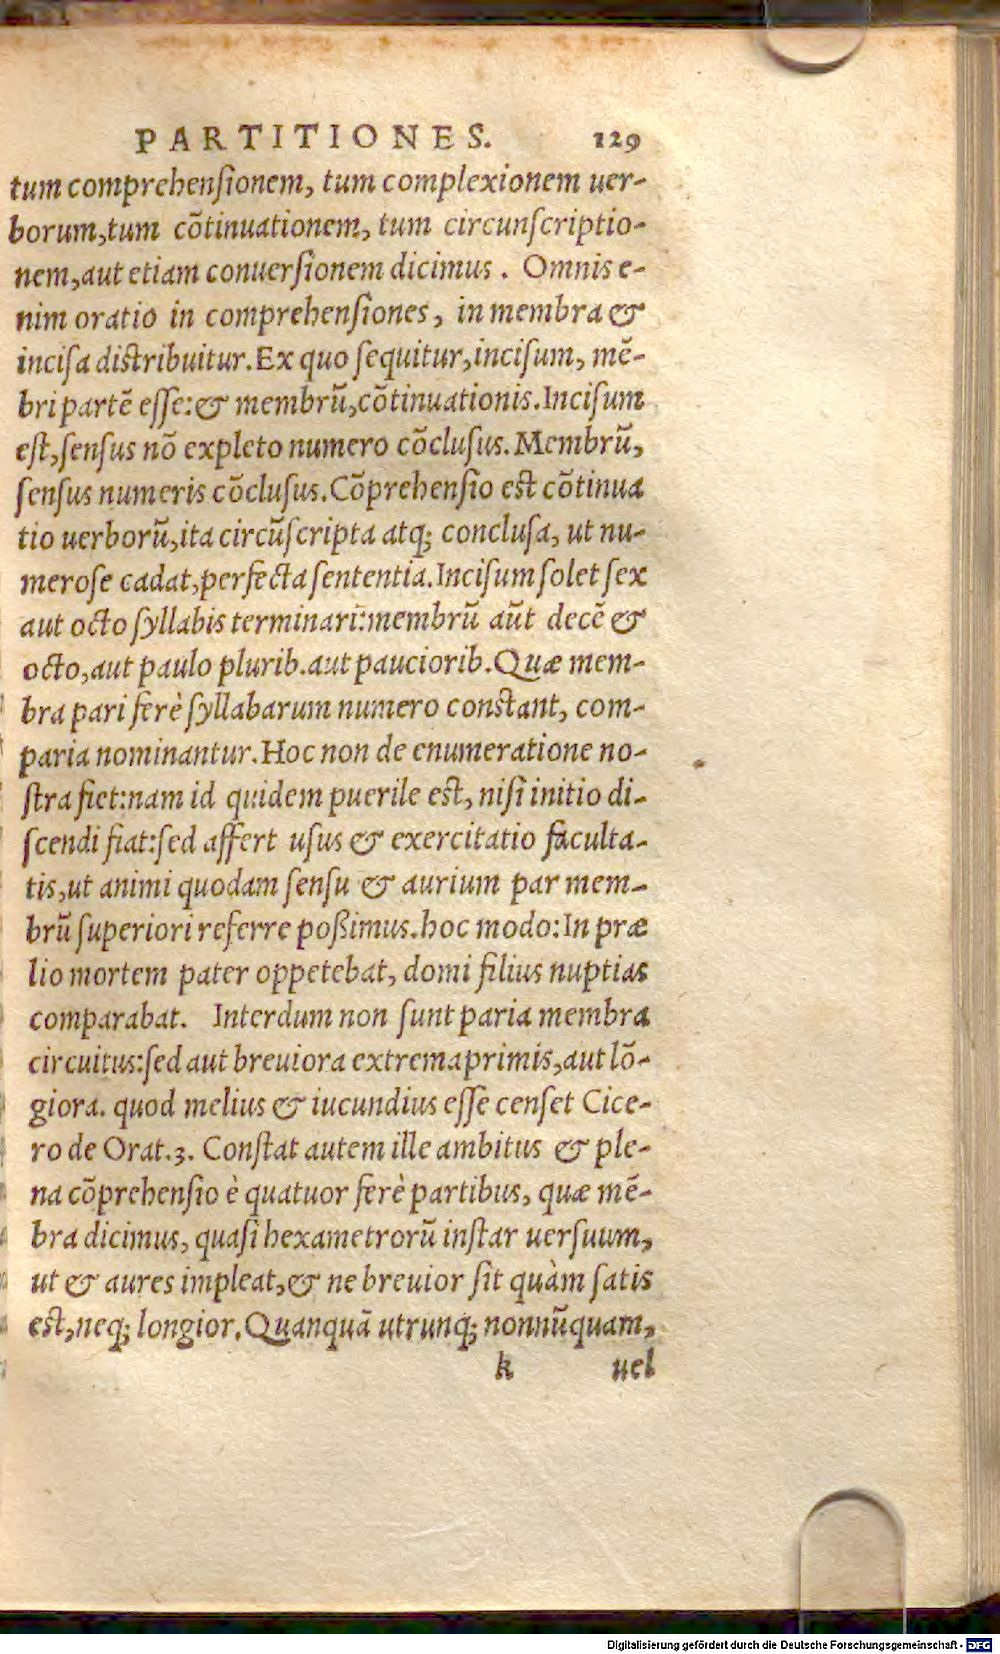 PARTITIONES. 129
tum comprehenſionem, tum complexionem uer-
borum,tum cõtinuationem, tum circunſcriptio-
nem,aut etiam conuerſionem dicimus. Omnis e-
nim oratio in comprehenſiones, in membra &
inciſa diſtribuitur.Ex quo ſequitur,inciſum, mẽ-
bri partẽ eſſe:& membrũ,cõtinuationis.Inciſum
eſt,ſenſus nõ expleto numero cõcluſus.Membrũ,
ſenſus numeris cõcluſus.Cõprehenſio eſt cõtinua
tio uerborũ,ita circũſcripta atq; concluſa, ut nu-
meroſe cadat,perfecta ſententia.Inciſum ſolet ſex
aut octo ſyllabis terminari:membrũ aũt decẽ &
octo,aut paulo plurib.aut pauciorib.Quæ mem-
bra pari ferè ſyllabarum numero conſtant, com-
paria nominantur.Hoc non de enumeratione no-
ſtra fiet:nam id quidem puerile eſt, niſi initio di-
ſcendi fiat:ſed affert uſus & exercitatio faculta-
tis,ut animi quodam ſenſu & aurium par mem-
brũ ſuperiori referre poßimus.hoc modo:In præ
lio mortem pater oppetebat, domi filius nuptias
comparabat. Interdum non ſunt paria membra
circuitus:ſed aut breuiora extrema primis,aut lõ-
giora. quod melius & iucundius eſſe cenſet Cice-
ro de Orat.3. Conſtat autem ille ambitus & ple-
na cõprehenſio è quatuor ferè partibus, quæ mẽ-
bra dicimus, quaſi hexametrorũ inſtar uerſuum,
ut & aures impleat,& ne breuior ſit quàm ſatis
eſt,neq; longior.Quanquã utrunq; nonnũquam,
k uel
Digitalisierung gefördert durch die Deutsche Forschungsgemeinschaft - DFG